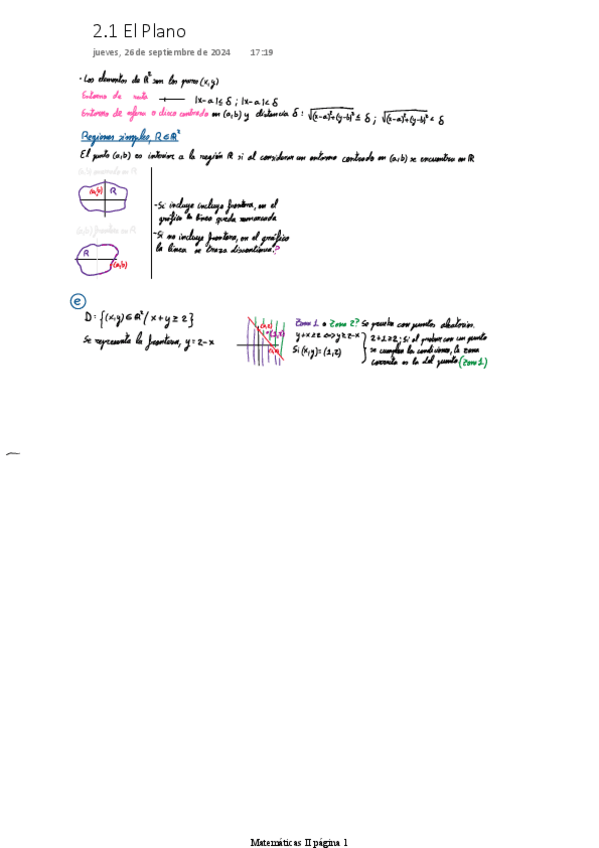 2.1 El Plano
jueves, 26 de septiembre de 2024 17:19
· Los elementos de ℝ² son los pares (x,y)
Entorno de |x-a| ≤ δ ; |x-a| < δ
Entorno de esfera o disco centrado en (a,b) y distancia δ : √(x-a)²+(y-b)² ≤ δ ; √(x-a)²+(y-b)² < δ
Regiones simples, R∈ℝ²
El punto (a,b) es interior a la región R si al considerar un entorno centrado en (a,b) se encuentra en R
(a,b) R
- Si incluye incluye frontera, en el
gráfico la línea queda remarcada
(a,b) frontera en R
- Si no incluye frontera, en el gráfico
la línea se traza discontinua.?
R
(a,b)
e
D = {(x,y)∈ℝ² / x+y ≥ 2}
Se representa la frontera, y = 2-x
Zona 1 o Zona 2? Se prueba con puntos aleatorios.
y+x≥2 ⇔ y≥2-x
Si (x,y)=(1,2)
2+1≥2; Si al probar con un punto
se cumplen las condiciones, la zona
correcta es la del punto (Zona 1)
Matemáticas II página 1